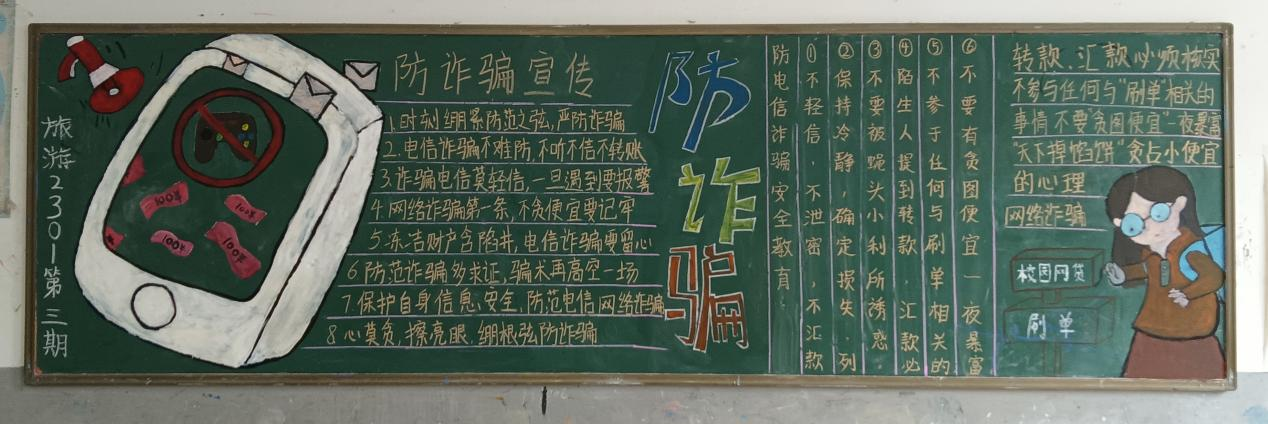 旅游2301第三期
100¥
100¥
100¥
100¥
防诈骗宣传
1.时刻绷紧防范之弦,严防诈骗
2.电信诈骗不难防,不听不信不转账
3.诈骗电信莫轻信,一旦遇到要报警
4.网络诈骗第一条,不贪便宜要记牢
5.冻洁财产含陷井,电信诈骗要留心
6防范诈骗多求证,骗术再高空一场
7.保护自身信息、安全,防范电信网络诈骗
8心莫贪,擦亮眼,绷根弦防诈骗
防诈骗
防电信诈骗安全教育:
①不轻信,不泄密,不汇款
②保持冷静,确定损失.列
③不要被蝇头小利所诱惑.
④陌生人提到转款.汇款必
⑤不参于任何与刷单相关的
⑥不要有贪图便宜一夜暴富
转款、汇款必须核实
不参与任何与"刷单"相关的
事情不要贪图便宜"一夜暴富
"天下掉馅饼"贪占小便宜
的心理
网络诈骗
校园网贷
刷单